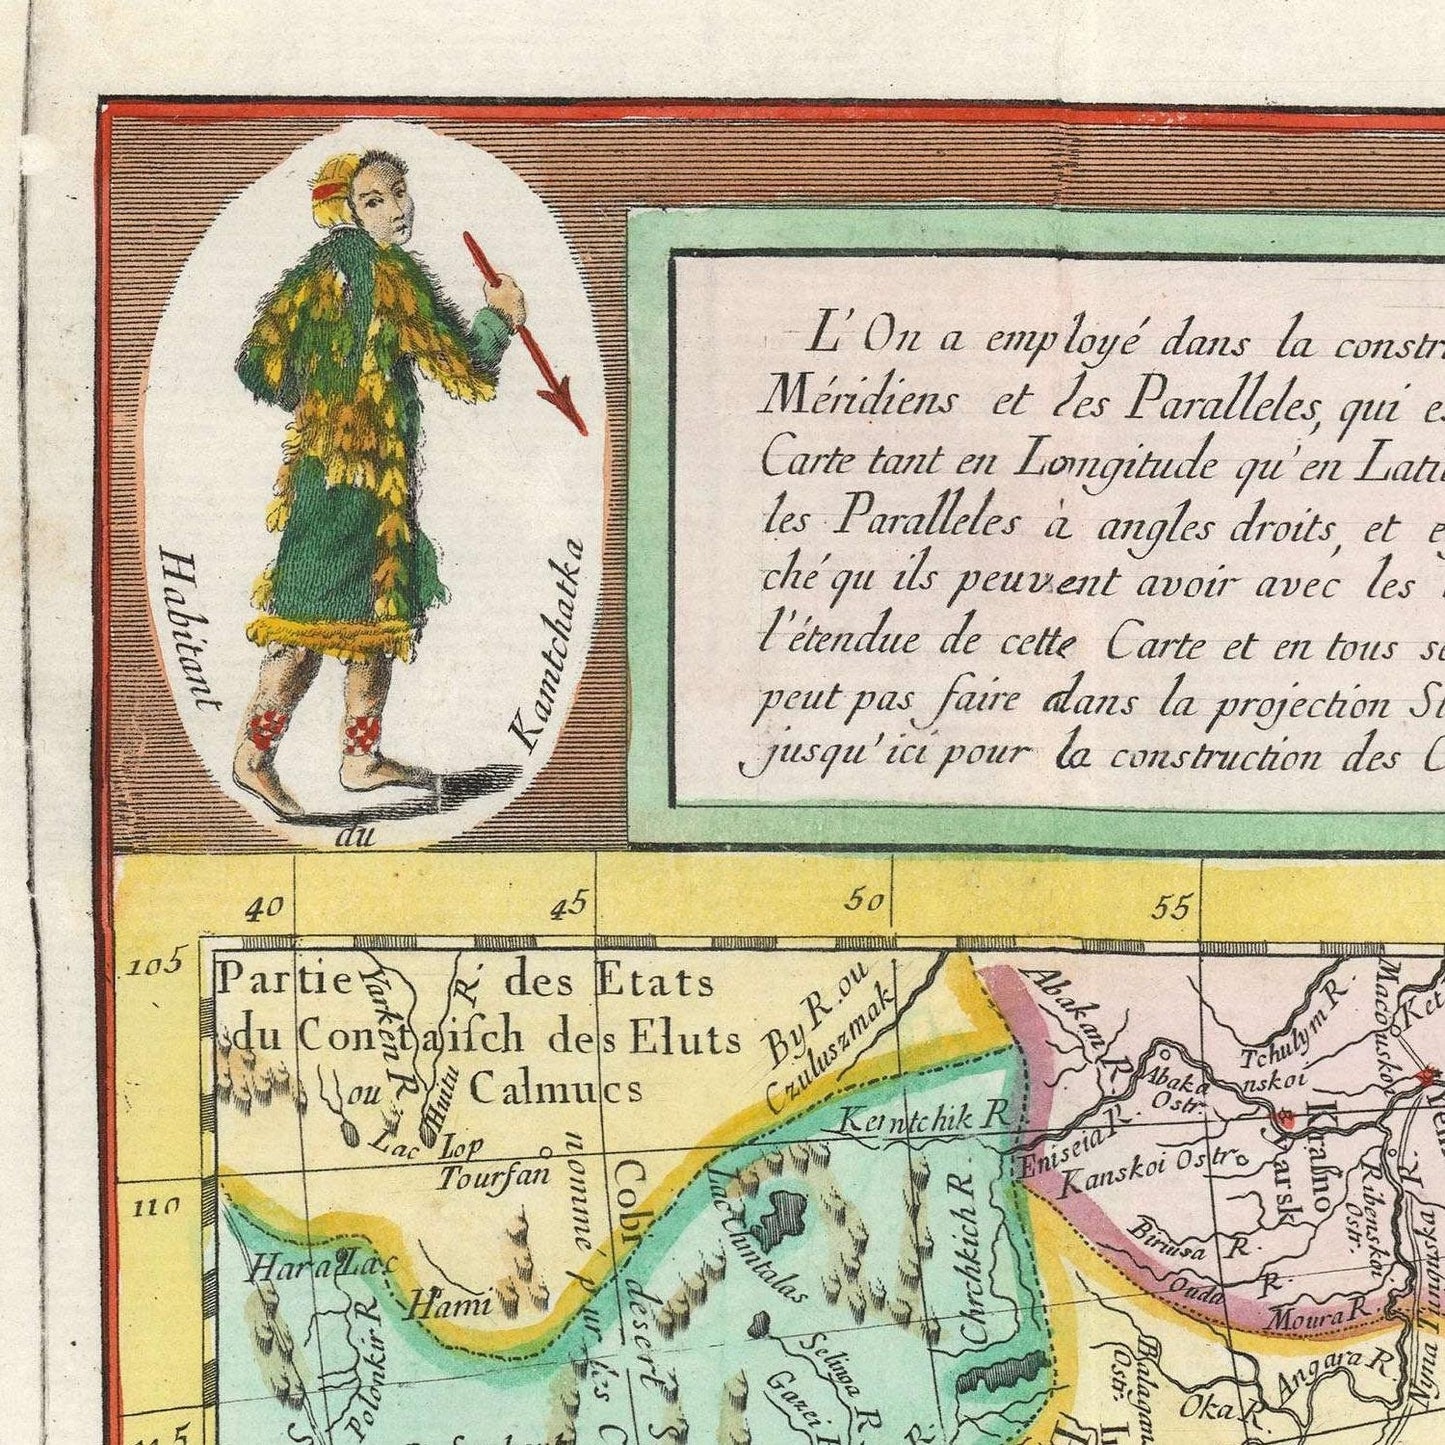 Habitant
du
Kamtchatka
L'On a employé dans la constr
Méridiens et les Paralleles, qui es
Carte tant en Longitude qu'en Latit
les Paralleles à angles droits, et e
ché qu ils peuvent avoir avec les
l'étendue de cette Carte et en tous se
peut pas faire dans la projection St
jusqu'ici pour la construction des C
40
45
50
55
105
110
115
Partie des Etats
du Contaiſch des Eluts
ou Calmucs
Yarken R.
Huttu R.
Lac Lop
Tourfan
By R. ou
Czuluszmak
Kemtchik R.
Abakan R.
Abaka
Ostr.
Eniseia R.
Kanskoi Ostr.
Tchulym R.
nskoi
Macovuskoi
Ket
Yen
Kraſno
yarsk
Ribenskoi
Ostr.
Biriusa R.
Ouda R.
Moura R.
Angara R.
Nyna Tunguska R.
Balagan
Ostr.
Oka R.
Cobi
nomme par les C
desert
S
Lac Vuntalas
Chrchkich R.
Selinga R.
Gazei
Hara Lac
Hami
Polonkir R.